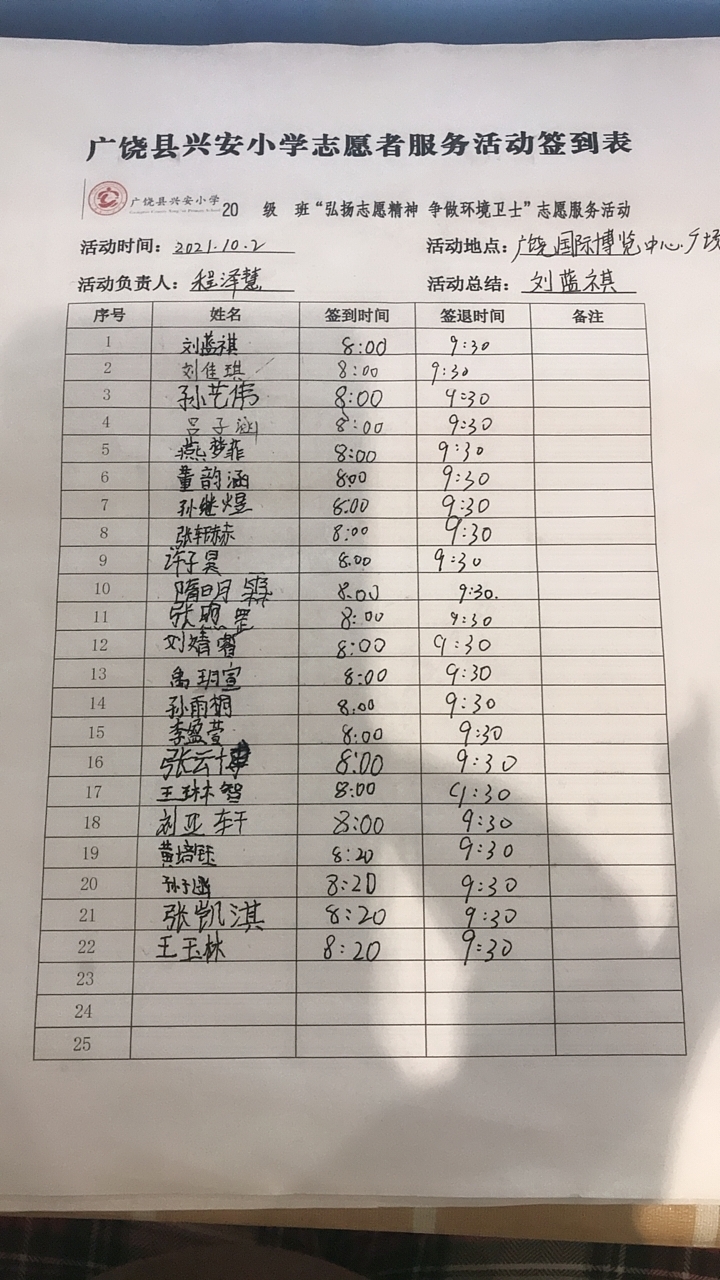 广饶县兴安小学志愿者服务活动签到表
广饶县兴安小学 20 级 班“弘扬志愿精神 争做环境卫士”志愿服务活动
活动时间：2021.10.2 活动地点：广饶国际博览中心广场
活动负责人：程泽慧 活动总结：刘蓝祺
序号 姓名 签到时间 签退时间 备注
1 刘蓝祺 8:00 9:30
2 刘佳琪 8:00 9:30
3 孙艺伟 8:00 9:30
4 吕子涵 8:00 9:30
5 燕梦菲 8:00 9:30
6 董韵涵 8:00 9:30
7 孙继煜 8:00 9:30
8 张轩赫 8:00 9:30
9 许子昊 8:00 9:30
10 隋明 8:00 9:30.
11 张 8:00 9:30
12 刘婧 8:00 9:30
13 禹玥宣 8:00 9:30
14 孙雨桐 8:00 9:30
15 李盈萱 8:00 9:30
16 张云博 8:00 9:30
17 王琳智 8:00 9:30
18 刘亚轩 8:00 9:30
19 黄培钰 8:20 9:30
20 孙子涵 8:20 9:30
21 张凯淇 8:20 9:30
22 王玉林 8:20 9:30
23
24
25